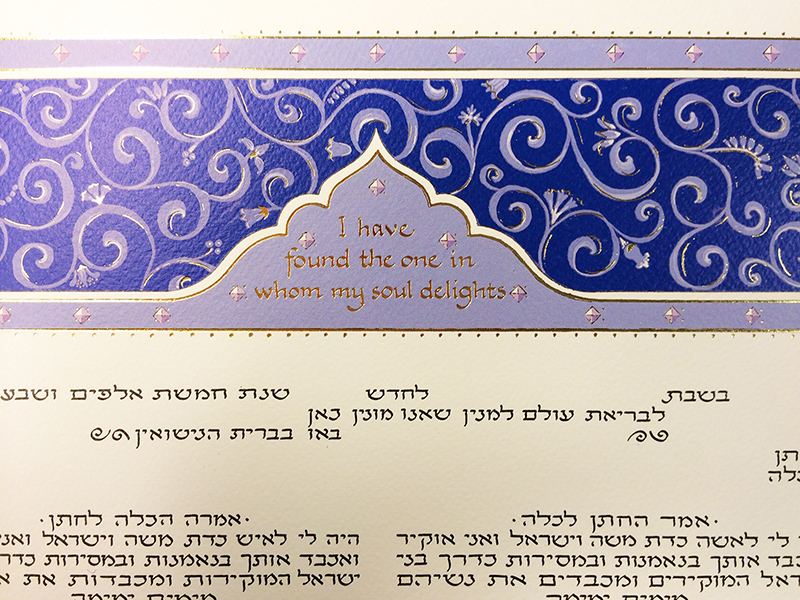 I have
found the one in
whom my soul delights
בשבת לחדש שנת חמשת אלפים ושבע
לבריאת עולם למנין שאנו מונין כאן
באו בברית הנישואין
·אמר החתן לכלה·
לי לאשה כדת משה וישראל ואני אוקיר
אותך בנאמנות ובמסירות כדרך בני
המוקירים ומכבדים את נשיהם
מימים ימימה
·אמרה הכלה לחתן·
היה לי לאיש כדת משה וישראל ואני
ואכבד אותך בנאמנות ובמסירות
ישראל המוקירות ומכבדות את
מימים ימימה